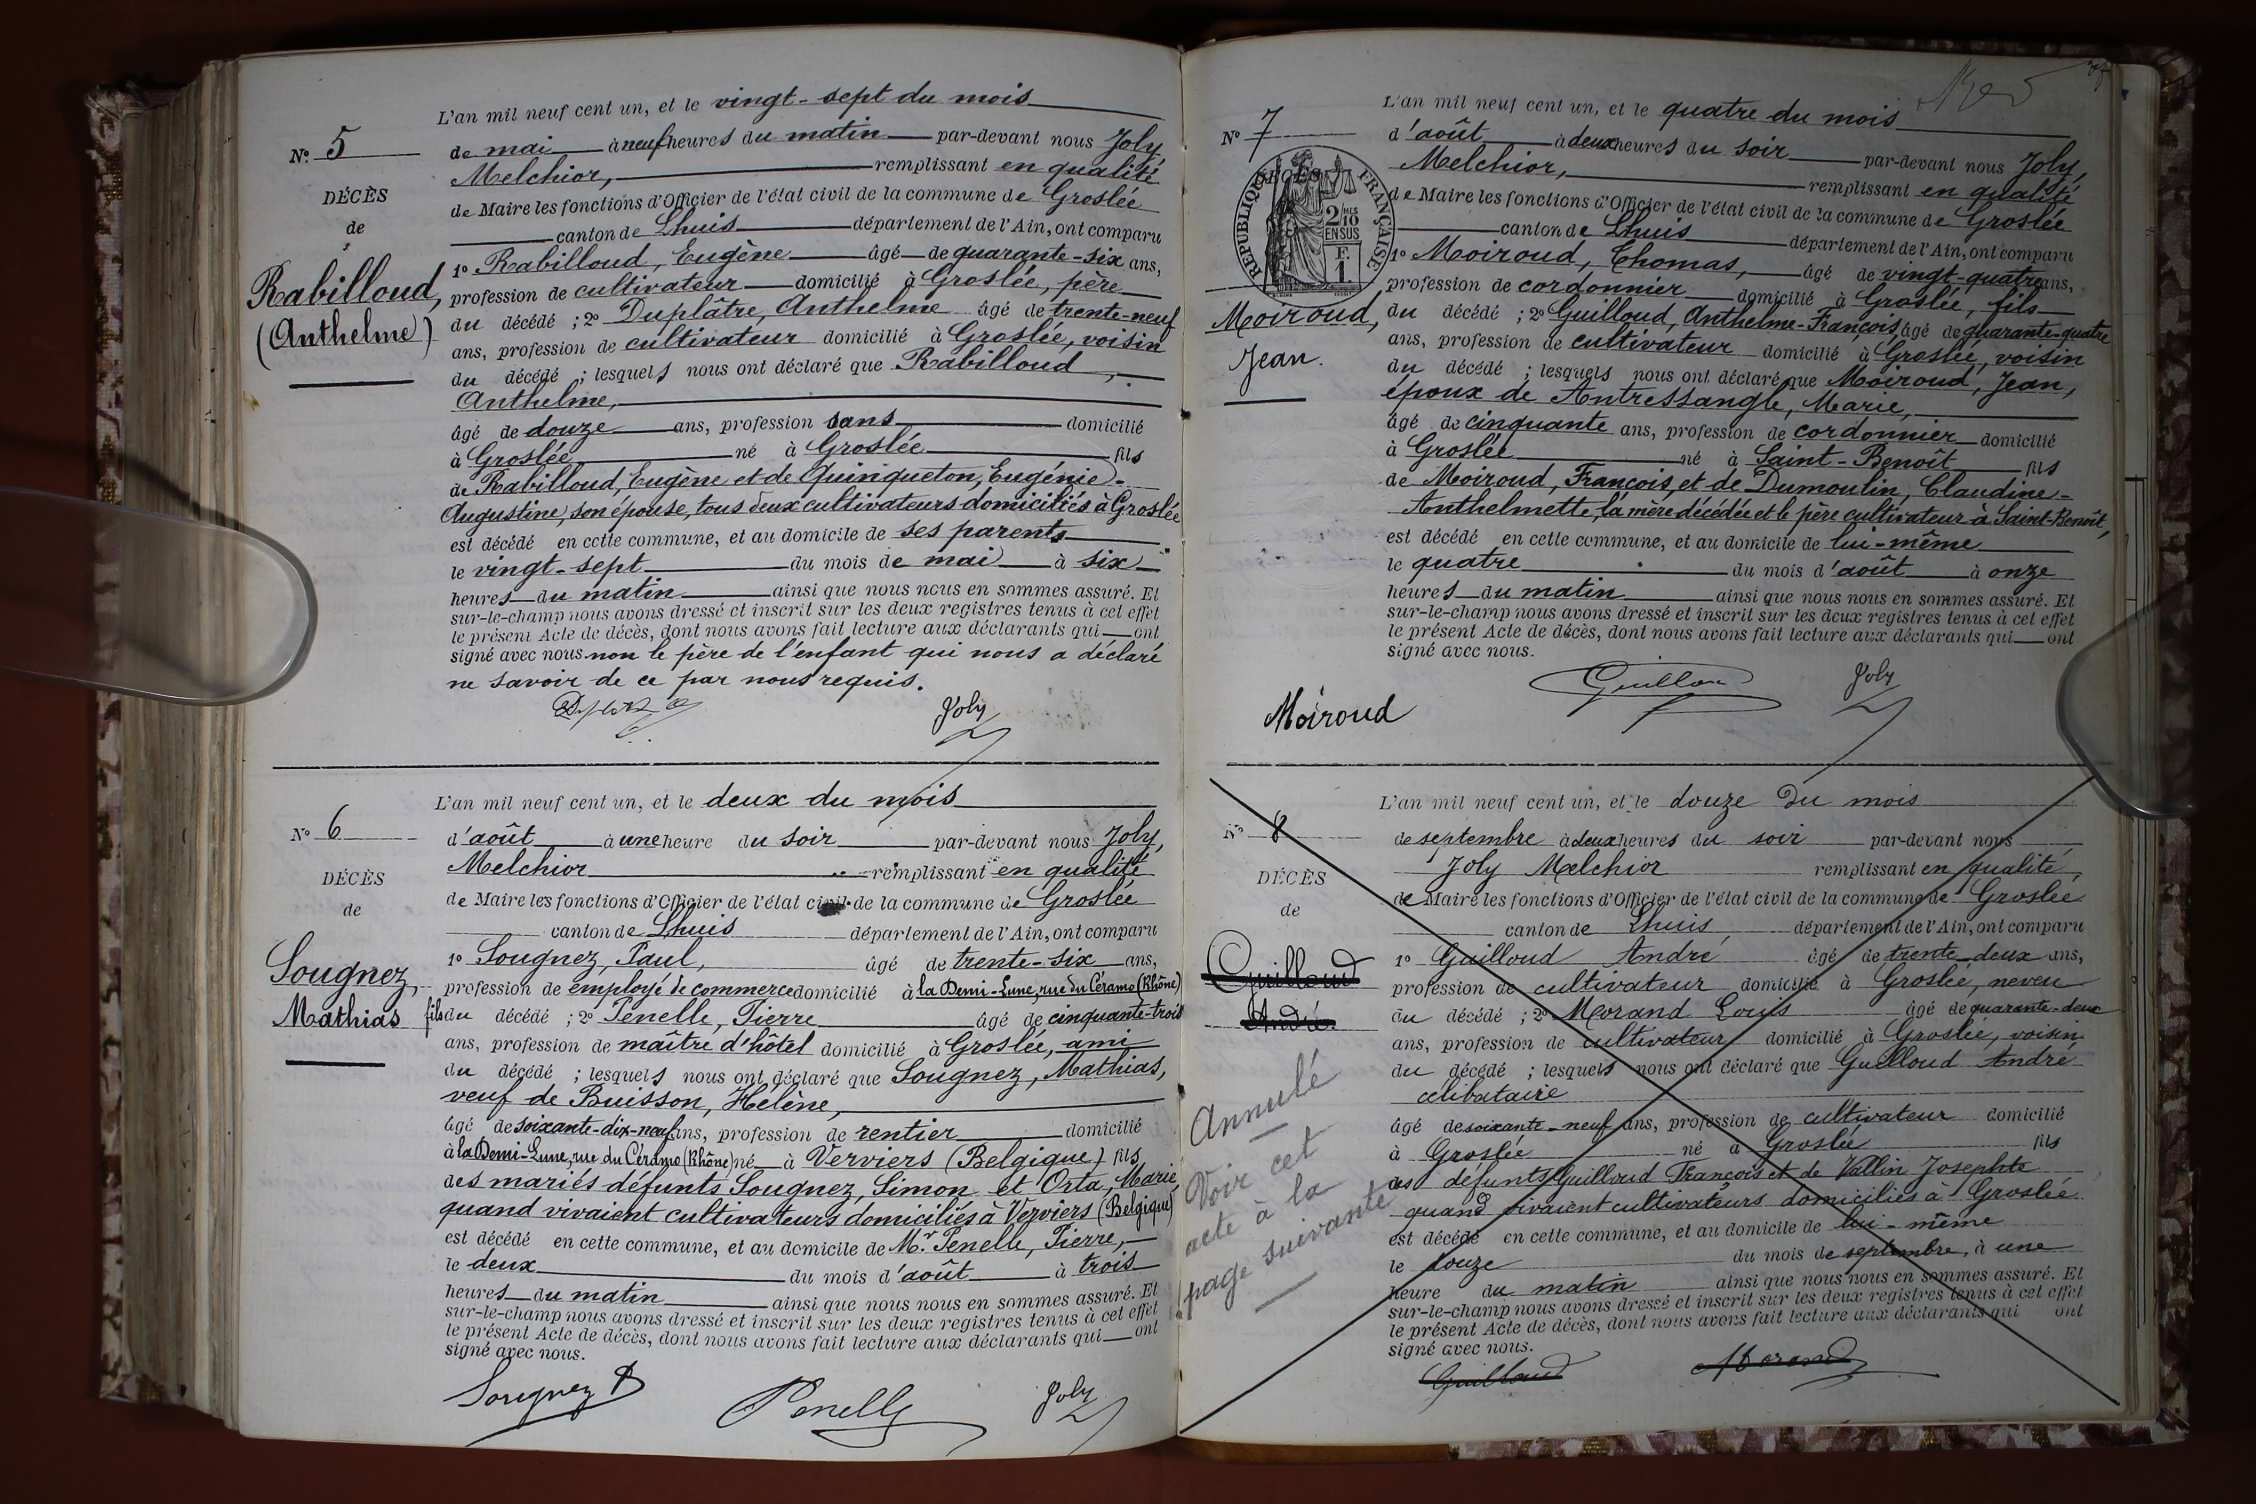 L'an mil neuf cent un, et le vingt-sept du mois
Nº 5
de mai à neuf heures du matin par-devant nous Joly,
Melchior, remplissant en qualité
DÉCÈS
de Maire les fonctions d'Officier de l'état civil de la commune de Groslée
de
canton de Lhuis département de l'Ain, ont comparu
1º Rabilloud, Eugène âgé de quarante-six ans,
Rabilloud,
(Anthelme)
profession de cultivateur domicilié à Groslée, père
du décédé ; 2º Duplâtre, Anthelme âgé de trente-neuf
ans, profession de cultivateur domicilié à Groslée, voisin
du décédé ; lesquels nous ont déclaré que Rabilloud,
Anthelme,
âgé de douze ans, profession sans domicilié
à Groslée né à Groslée fils
de Rabilloud, Eugène et de Quinqueton, Eugénie-
Augustine, son épouse, tous deux cultivateurs domiciliés à Groslée
est décédé en cette commune, et au domicile de ses parents
le vingt-sept du mois de mai à six
heures du matin ainsi que nous nous en sommes assuré. Et
sur-le-champ nous avons dressé et inscrit sur les deux registres tenus à cet effet
le présent Acte de décès, dont nous avons fait lecture aux déclarants qui ont
signé avec nous non le père de l'enfant qui nous a déclaré
ne savoir de ce par nous requis.
Joly
L'an mil neuf cent un, et le deux du mois
Nº 6
d'août à une heure du soir par-devant nous Joly,
Melchior remplissant en qualité
DÉCÈS
de Maire les fonctions d'Officier de l'état civil de la commune de Groslée
de
canton de Lhuis département de l'Ain, ont comparu
1º Sougnez, Paul, âgé de trente-six ans,
Sougnez,
Mathias
profession de employé de commerce domicilié à la Demi-Lune, rue du Céramo (Rhône)
fils du décédé ; 2º Penelle, Pierre âgé de cinquante-trois
ans, profession de maître d'hôtel domicilié à Groslée, ami
du décédé ; lesquels nous ont déclaré que Sougnez, Mathias,
veuf de Buisson, Helène,
âgé de soixante-dix-neuf ans, profession de rentier domicilié
à la Demi-Lune, rue du Céramo (Rhône) né à Verviers (Belgique) fils
des mariés défunts Sougnez, Simon et Orta, Marie,
quand vivaient cultivateurs domiciliés à Verviers (Belgique)
est décédé en cette commune, et au domicile de Mr Penelle, Pierre,
le deux du mois d'août à trois
heures du matin ainsi que nous nous en sommes assuré. Et
sur-le-champ nous avons dressé et inscrit sur les deux registres tenus à cet effet
le présent Acte de décès, dont nous avons fait lecture aux déclarants qui ont
signé avec nous.
Sougnez P Penelle Joly
L'an mil neuf cent un, et le quatre du mois
Nº 7
d'août à deux heures du soir par-devant nous Joly,
Melchior, remplissant en qualité
DÉCÈS
RÉPUBLIQUE FRANÇAISE
2 MES 10 EN SUS
F. 1
de Maire les fonctions d'Officier de l'état civil de la commune de Groslée
canton de Lhuis département de l'Ain, ont comparu
1º Moiroud, Thomas, âgé de vingt-quatre ans,
profession de cordonnier domicilié à Groslée, fils
Moiroud,
Jean.
du décédé ; 2º Guilloud, Anthelme-François, âgé de quarante-quatre
ans, profession de cultivateur domicilié à Groslée, voisin
du décédé ; lesquels nous ont déclaré que Moiroud, Jean,
époux de Antressangle, Marie,
âgé de cinquante ans, profession de cordonnier domicilié
à Groslée né à Saint-Benoît fils
de Moiroud, François, et de Dumoulin, Claudine-
Anthelmette, la mère décédée et le père cultivateur à Saint-Benoît,
est décédé en cette commune, et au domicile de lui-même
le quatre du mois d'août à onze
heures du matin ainsi que nous nous en sommes assuré. Et
sur-le-champ nous avons dressé et inscrit sur les deux registres tenus à cet effet
le présent Acte de décès, dont nous avons fait lecture aux déclarants qui ont
signé avec nous.
Moiroud Guilloud Joly
L'an mil neuf cent un, et le douze du mois
Nº 8
de septembre à deux heures du soir par-devant nous
Joly Melchior remplissant en qualité
DÉCÈS
de Maire les fonctions d'Officier de l'état civil de la commune de Groslée
de
canton de Lhuis, département de l'Ain, ont comparu
1º Guilloud André âgé de trente-deux ans,
Guilloud
André.
profession de cultivateur domicilié à Groslée, neveu
du décédé ; 2º Morand Louis âgé de quarante-deux
ans, profession de cultivateur domicilié à Groslée, voisin
du décédé ; lesquels nous ont déclaré que Guilloud André
célibataire
âgé de soixante-neuf ans, profession de cultivateur domicilié
à Groslée né à Groslée fils
des défunts Guilloud François et de Vallin Josephte
quand vivaient cultivateurs domiciliés à Groslée
est décédé en cette commune, et au domicile de lui-même
le douze du mois de septembre, à une
heure du matin ainsi que nous nous en sommes assuré. Et
sur-le-champ nous avons dressé et inscrit sur les deux registres tenus à cet effet
le présent Acte de décès, dont nous avons fait lecture aux déclarants qui ont
signé avec nous.
Guilloud Morand
Annulé
Voir cet
acte à la
page suivante